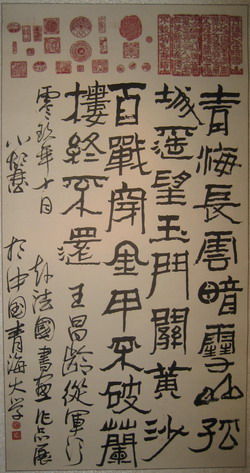 青海長雲暗雪山孤
城遥望玉門關黄沙
百戰穿金甲不破蘭
樓終不還 王昌齡從軍行
零玖年十月 赴法國書畫作品展
於中國青海大學